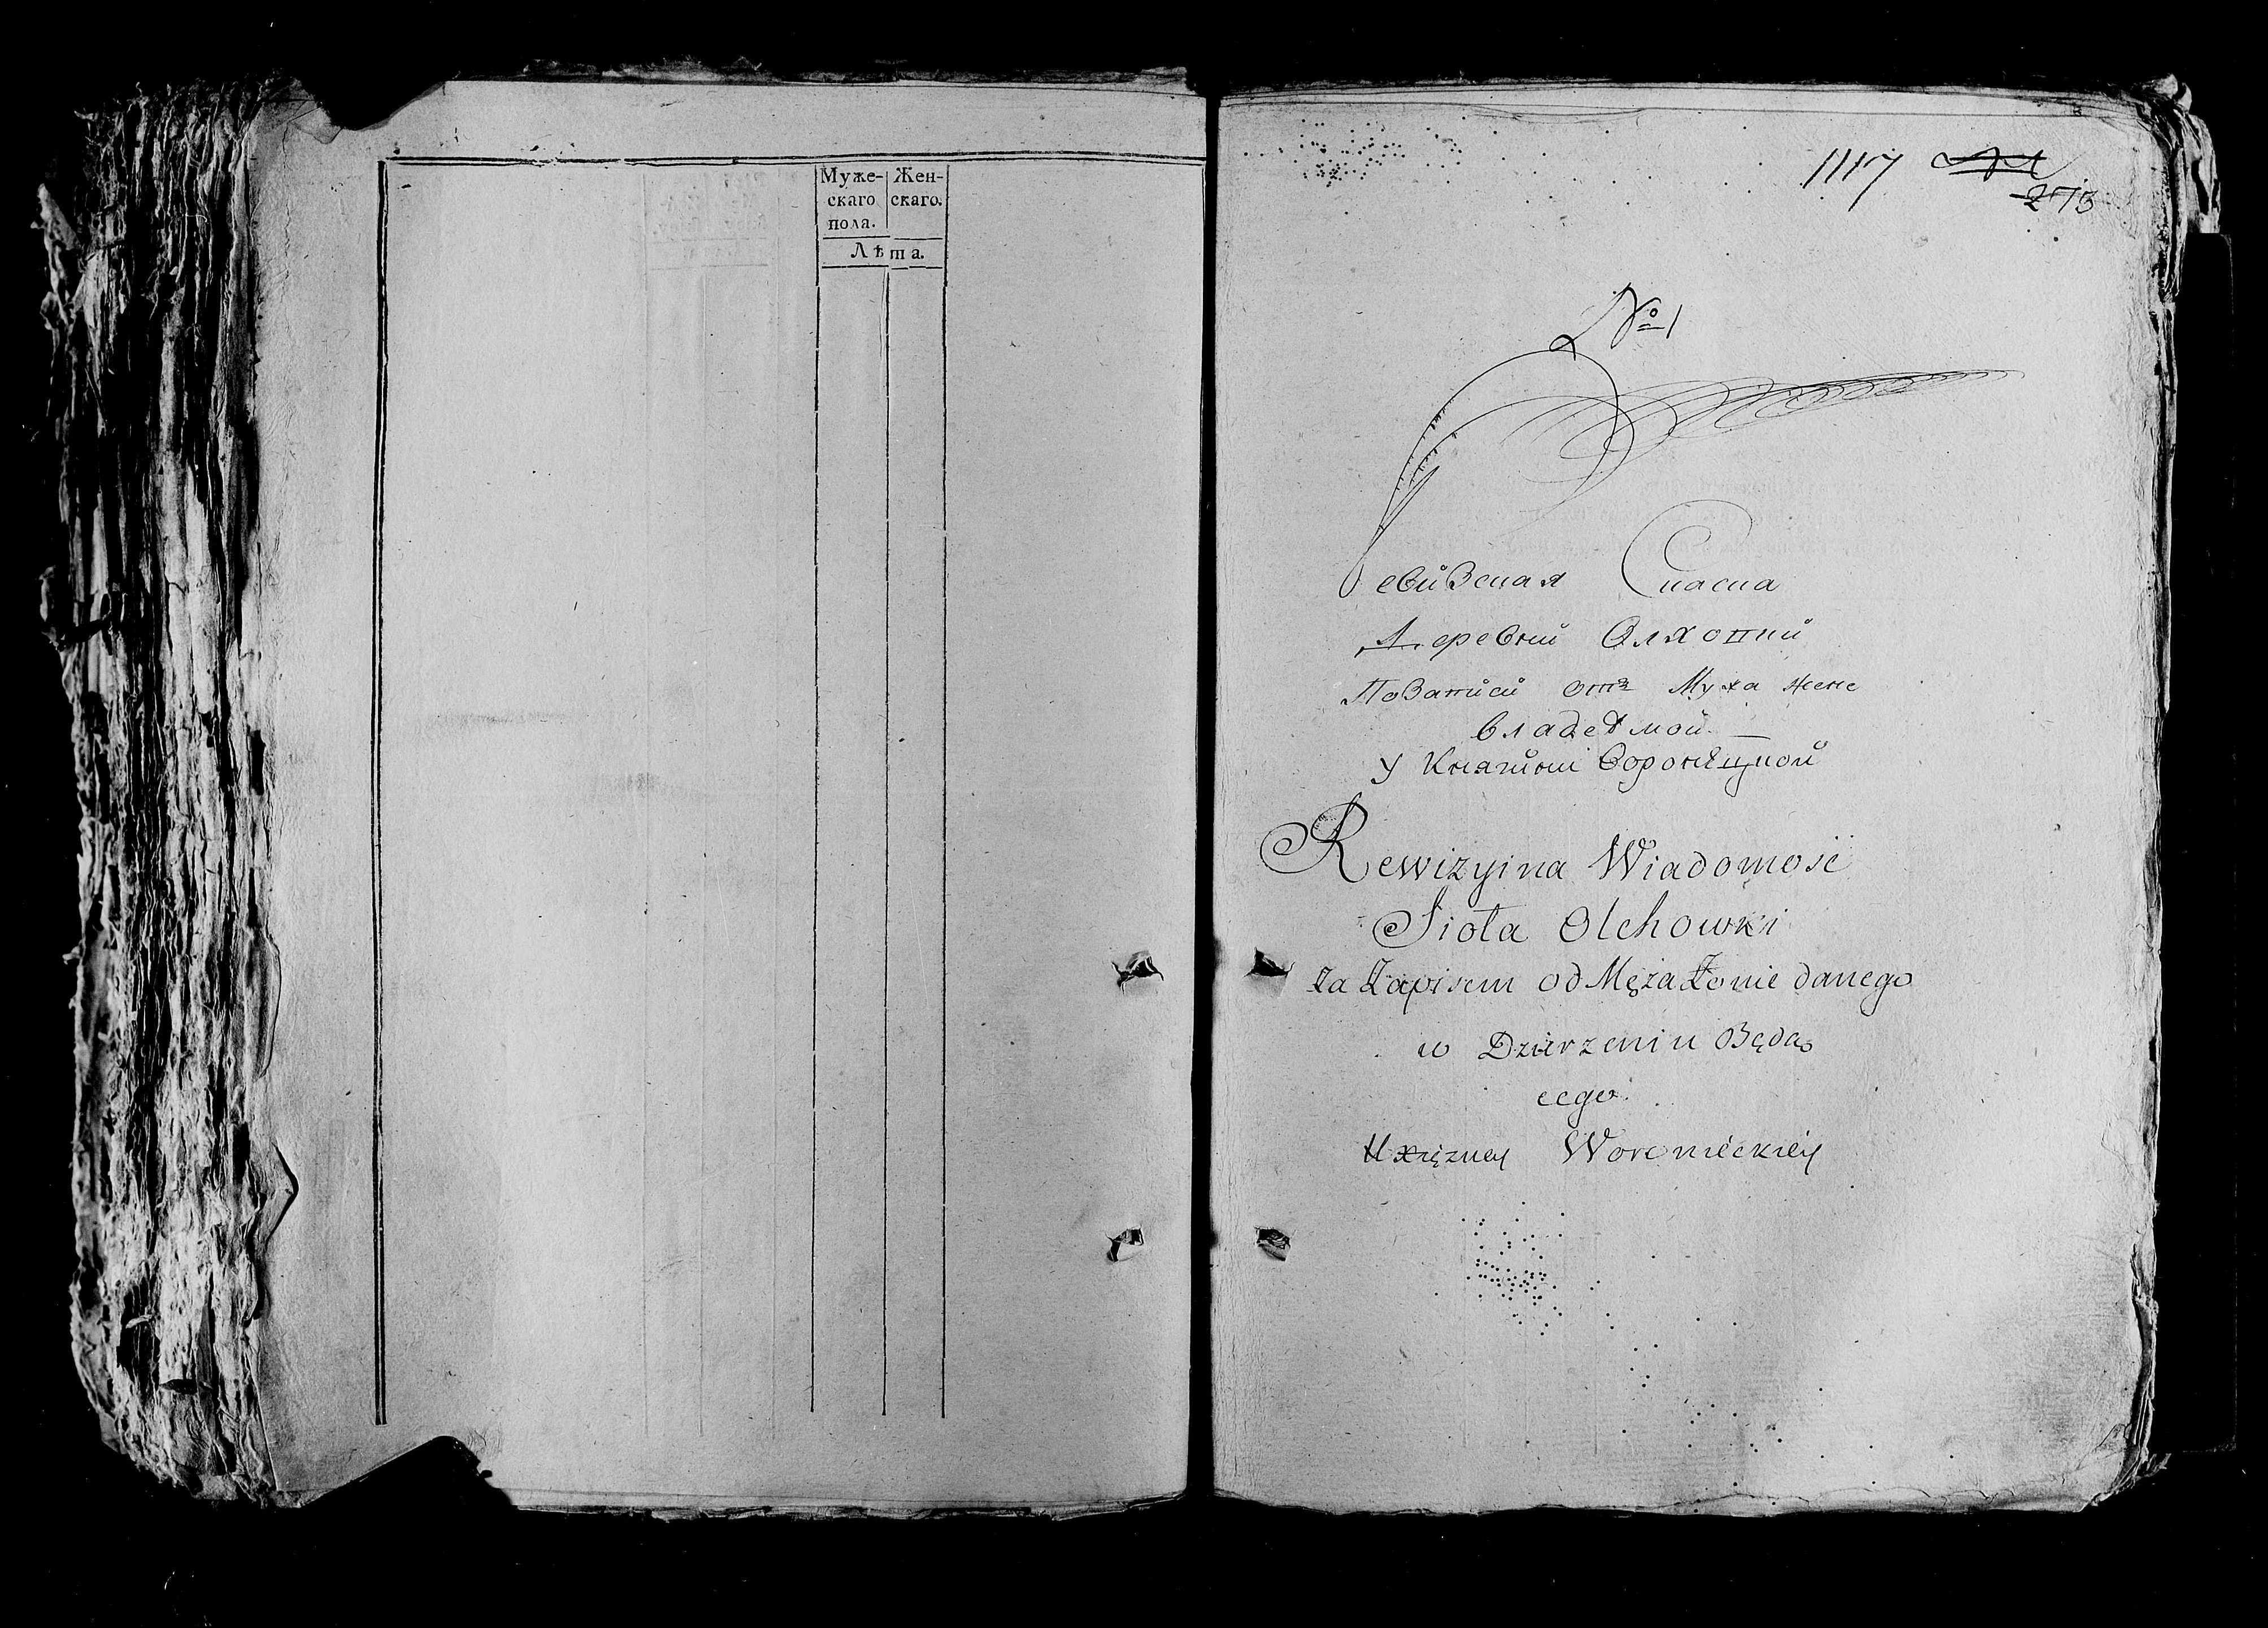 Муже- Жен-
скаго скаго.
пола.
Лѣта.
1117
273
№ 1
Ревизская Скаска
Деревни Олхопки
По Записи отъ Мужа жене
владеемой.
у Княгини Воронѣцкой
Rewizyina Wiadomość
Sioła Olchowki
Za Zapisem od Męża Żonie danego
w Dzierzeniu Będą
cego.
U Xiężney Woronieckiey